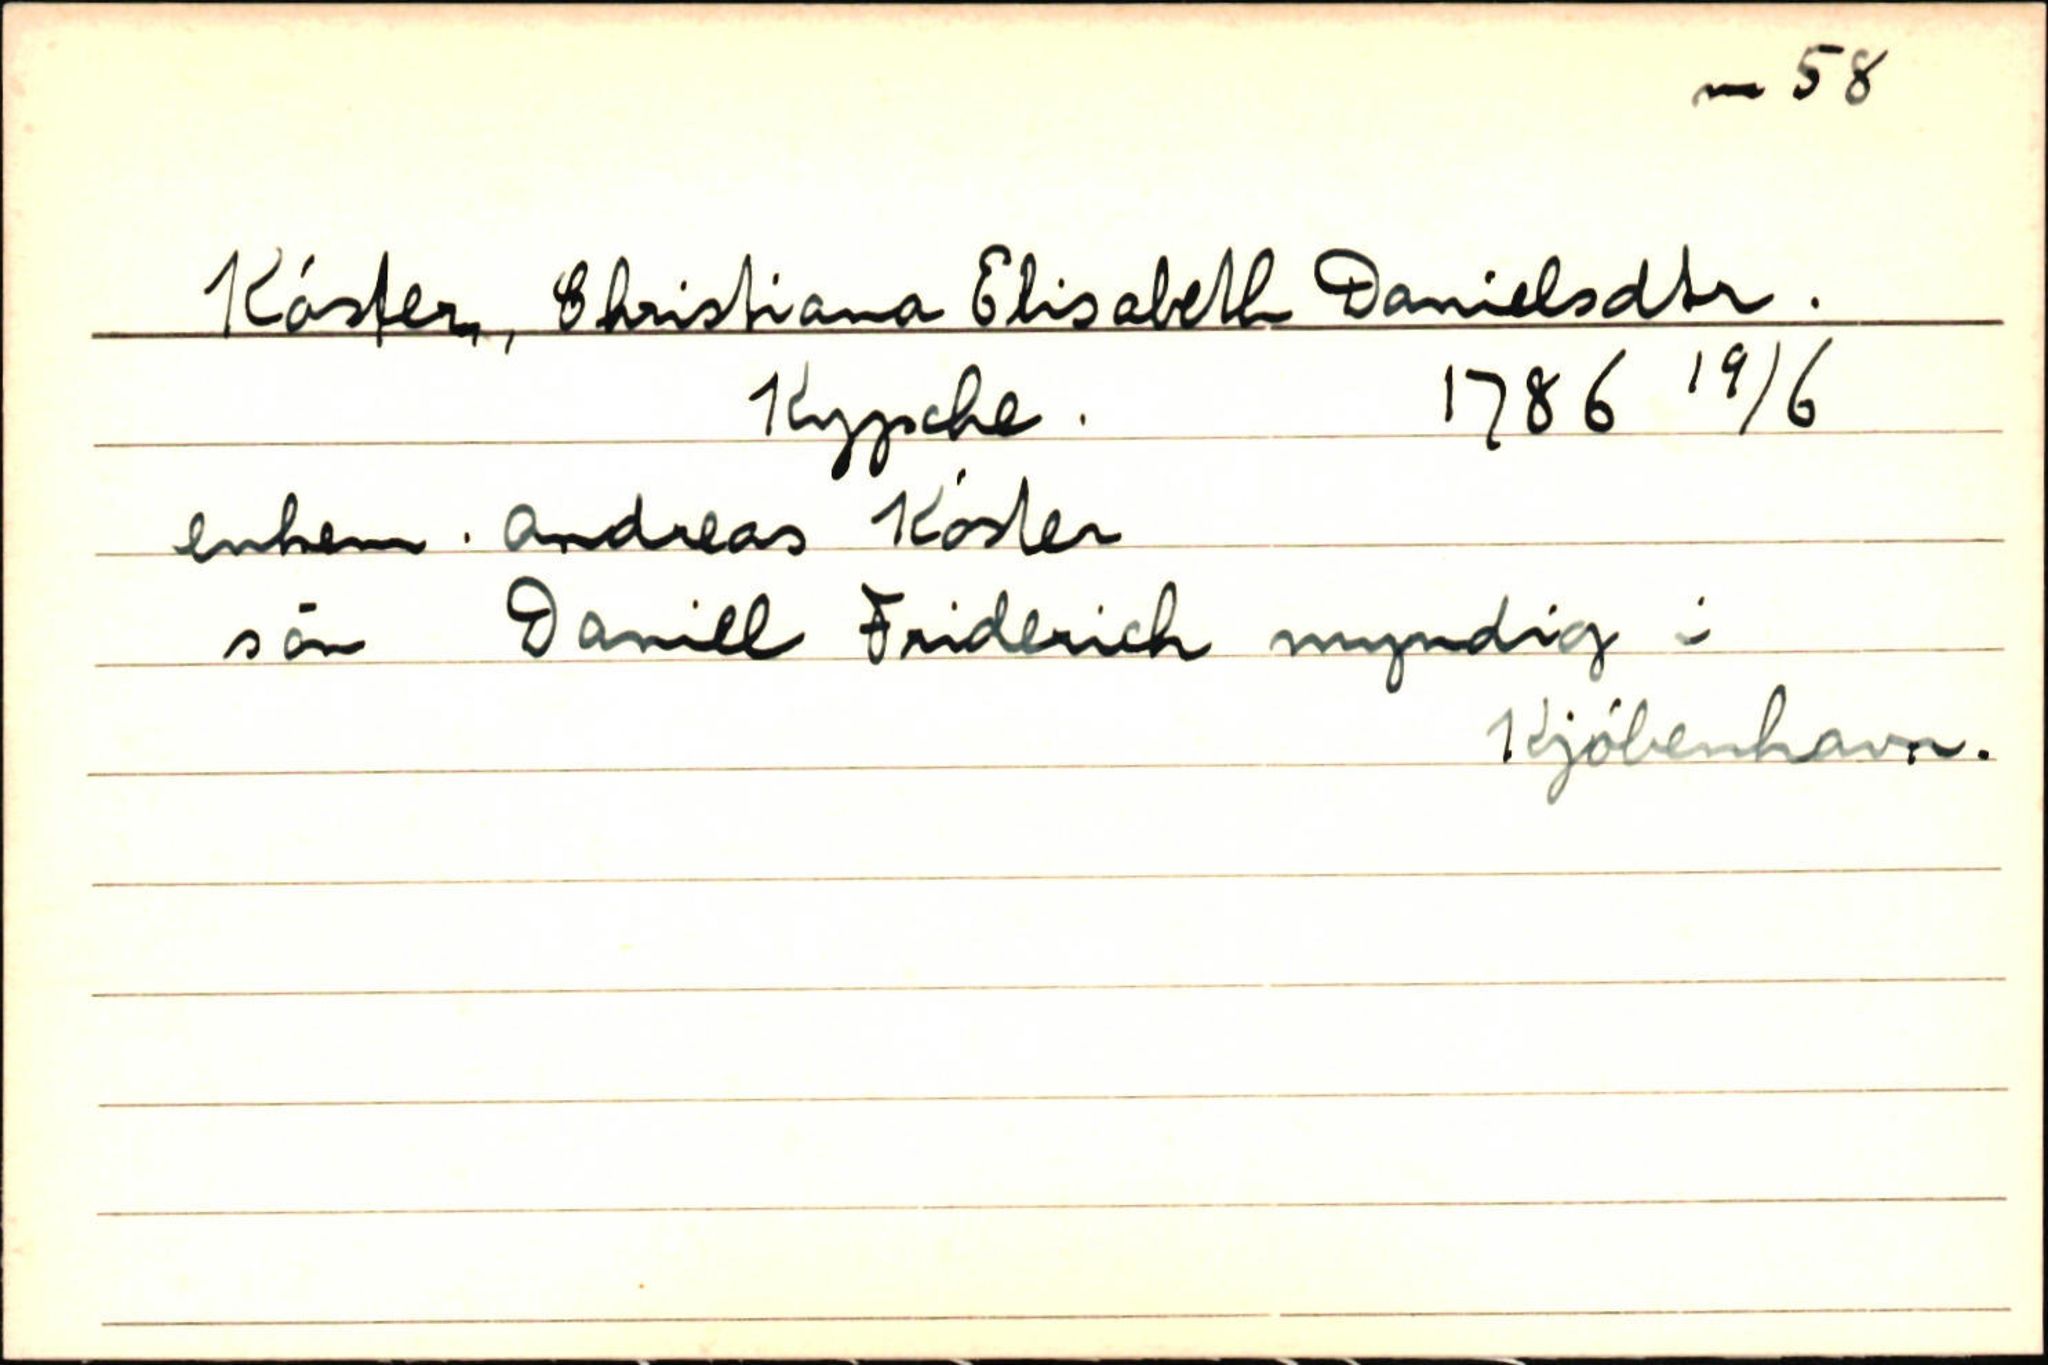 m 58
Köster, Christiana Elisabeth Danielsdtr.
Kypsche. 1786 19/6
enkem. Andreas Köster
sön Daniell Friderich myndig i
Kjöbenhavn.